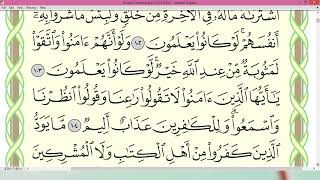 ٱشۡتَرَىٰهُ مَا لَهُۥ فِي ٱلۡأٓخِرَةِ مِنۡ خَلَٰقٖۚ وَلَبِئۡسَ مَا شَرَوۡاْ بِهِۦٓ
أَنفُسَهُمۡۚ لَوۡ كَانُواْ يَعۡلَمُونَ ١٠٢ وَلَوۡ أَنَّهُمۡ ءَامَنُواْ وَٱتَّقَوۡاْ
لَمَثُوبَةٞ مِّنۡ عِندِ ٱللَّهِ خَيۡرٞۚ لَّوۡ كَانُواْ يَعۡلَمُونَ ١٠٣
يَٰٓأَيُّهَا ٱلَّذِينَ ءَامَنُواْ لَا تَقُولُواْ رَٰعِنَا وَقُولُواْ ٱنظُرۡنَا
وَٱسۡمَعُواْۗ وَلِلۡكَٰفِرِينَ عَذَابٌ أَلِيمٞ ١٠٤ مَّا يَوَدُّ
ٱلَّذِينَ كَفَرُواْ مِنۡ أَهۡلِ ٱلۡكِتَٰبِ وَلَا ٱلۡمُشۡرِكِينَ